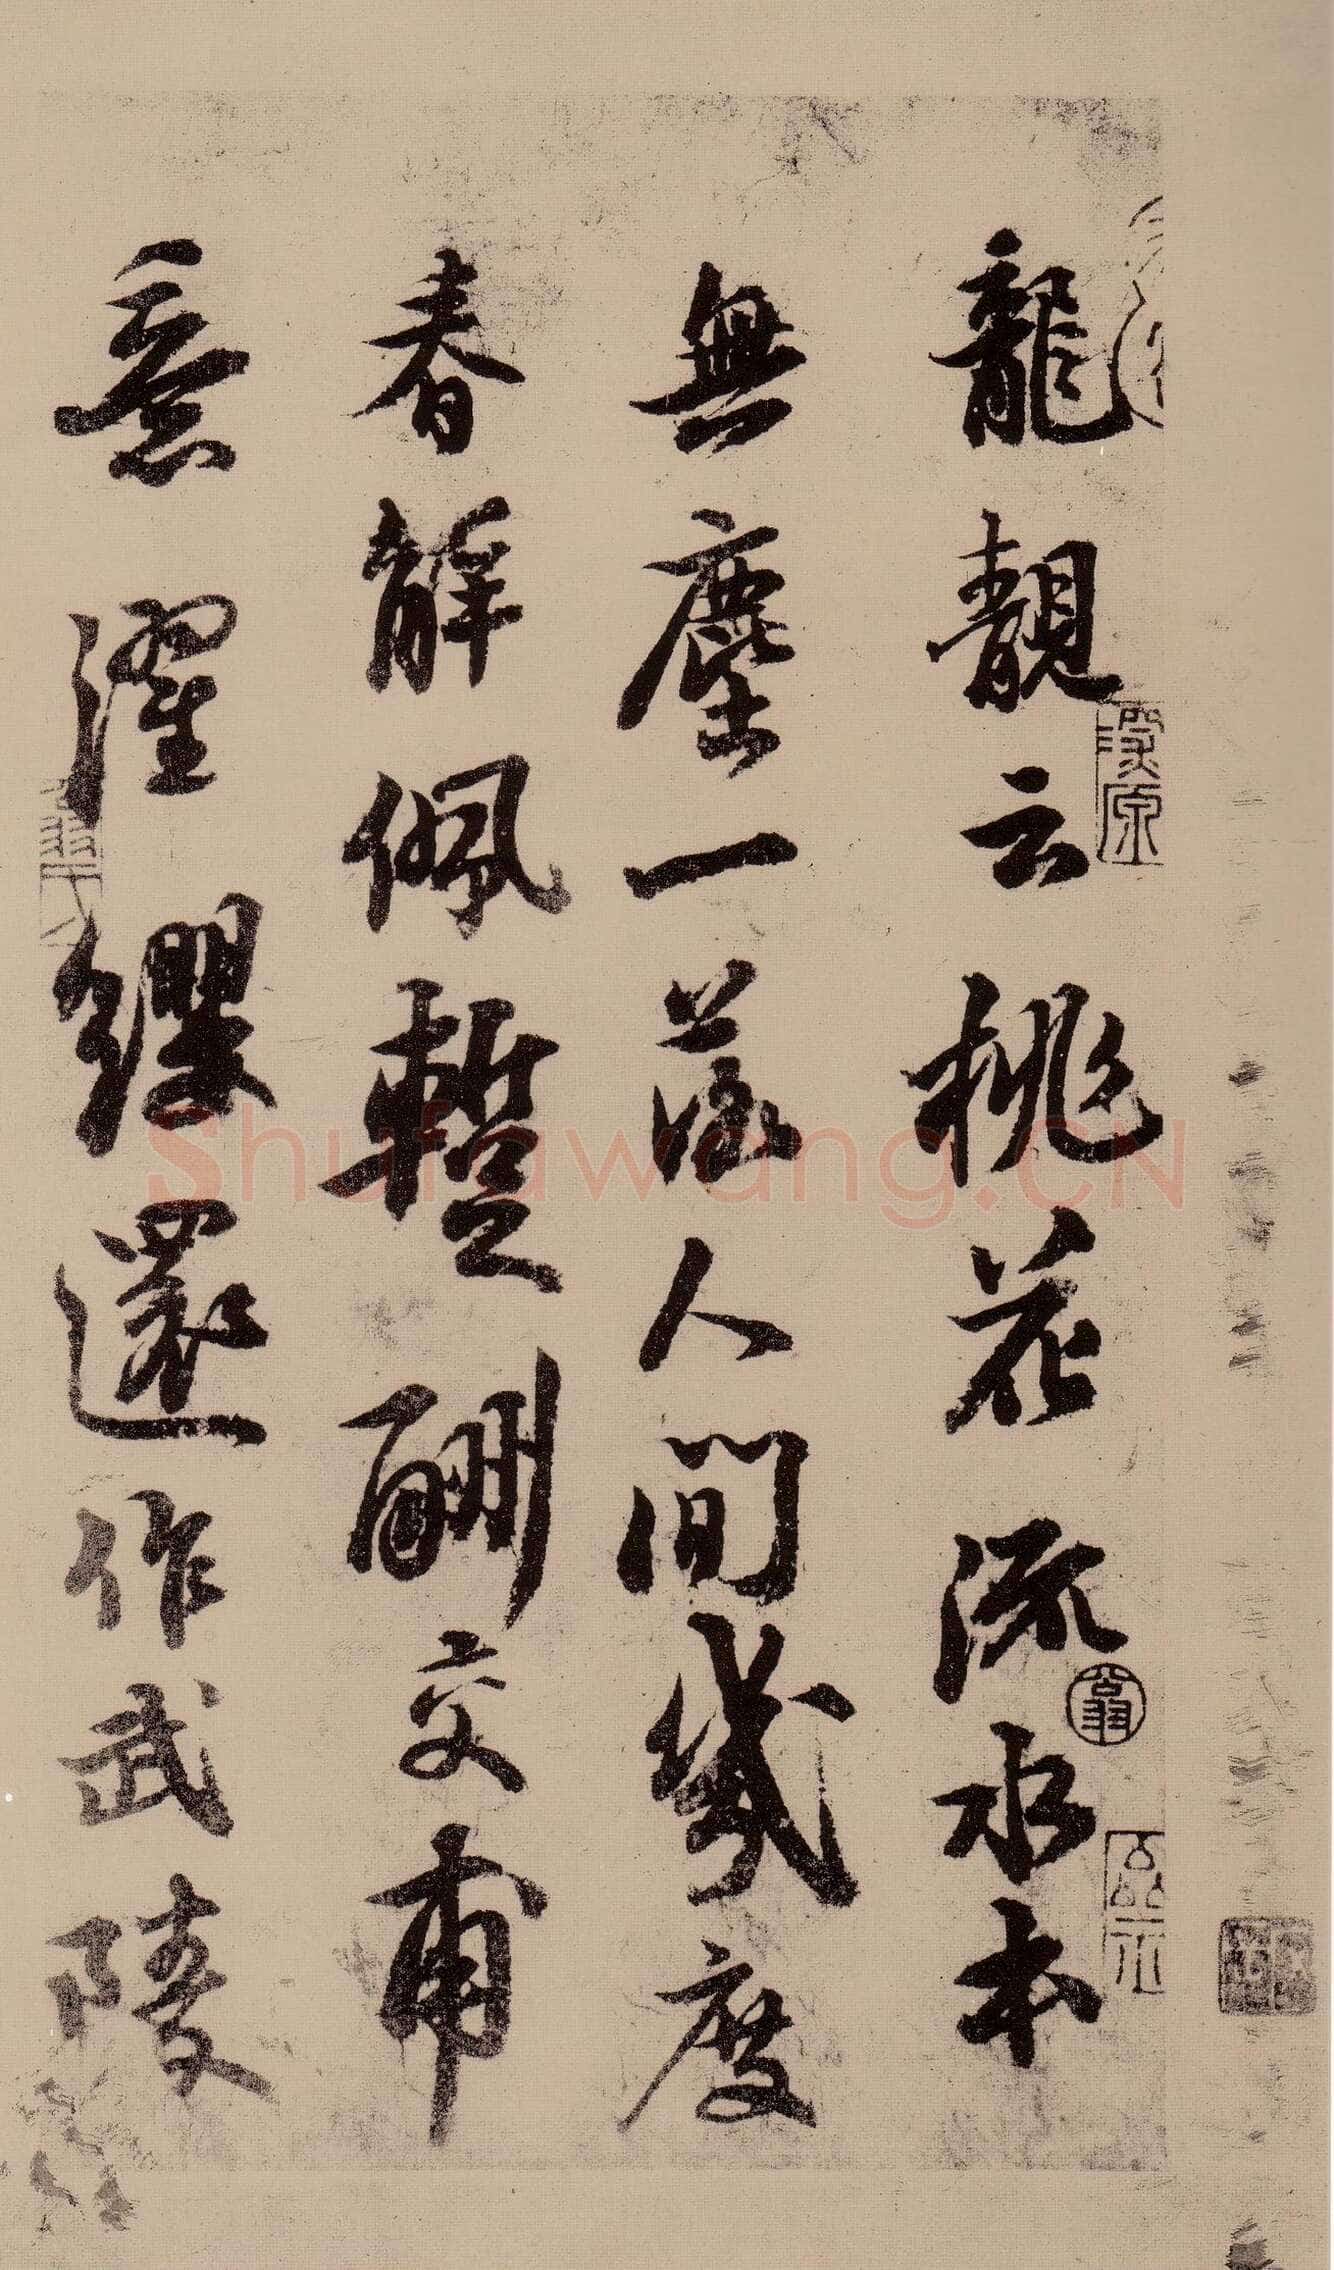 龍靚云桃花流水本
無塵一落人間幾度
春解佩蹔酬交甫
意濯纓還作武陵
Shufawang.CN